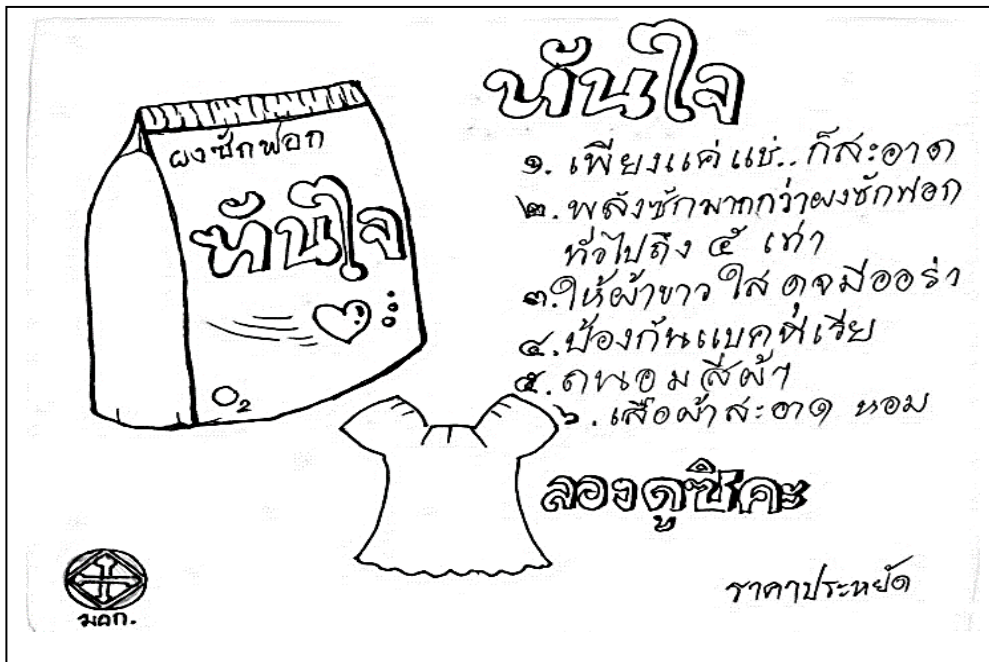 ทันใจ
๑. เพียงแค่แช่.. ก็สะอาด
๒. พลังซักมากกว่าผงซักฟอก
ทั่วไปถึง ๕ เท่า
๓. ให้ผ้าขาว ใส ดุจมีออร่า
๔. ป้องกันแบคทีเรีย
๕. ถนอมสีผ้า
๖. เสื้อผ้าสะอาด หอม
ลองดูซิคะ
ราคาประหยัด
ผงซักฟอก
ทันใจ
O₂
มอก.